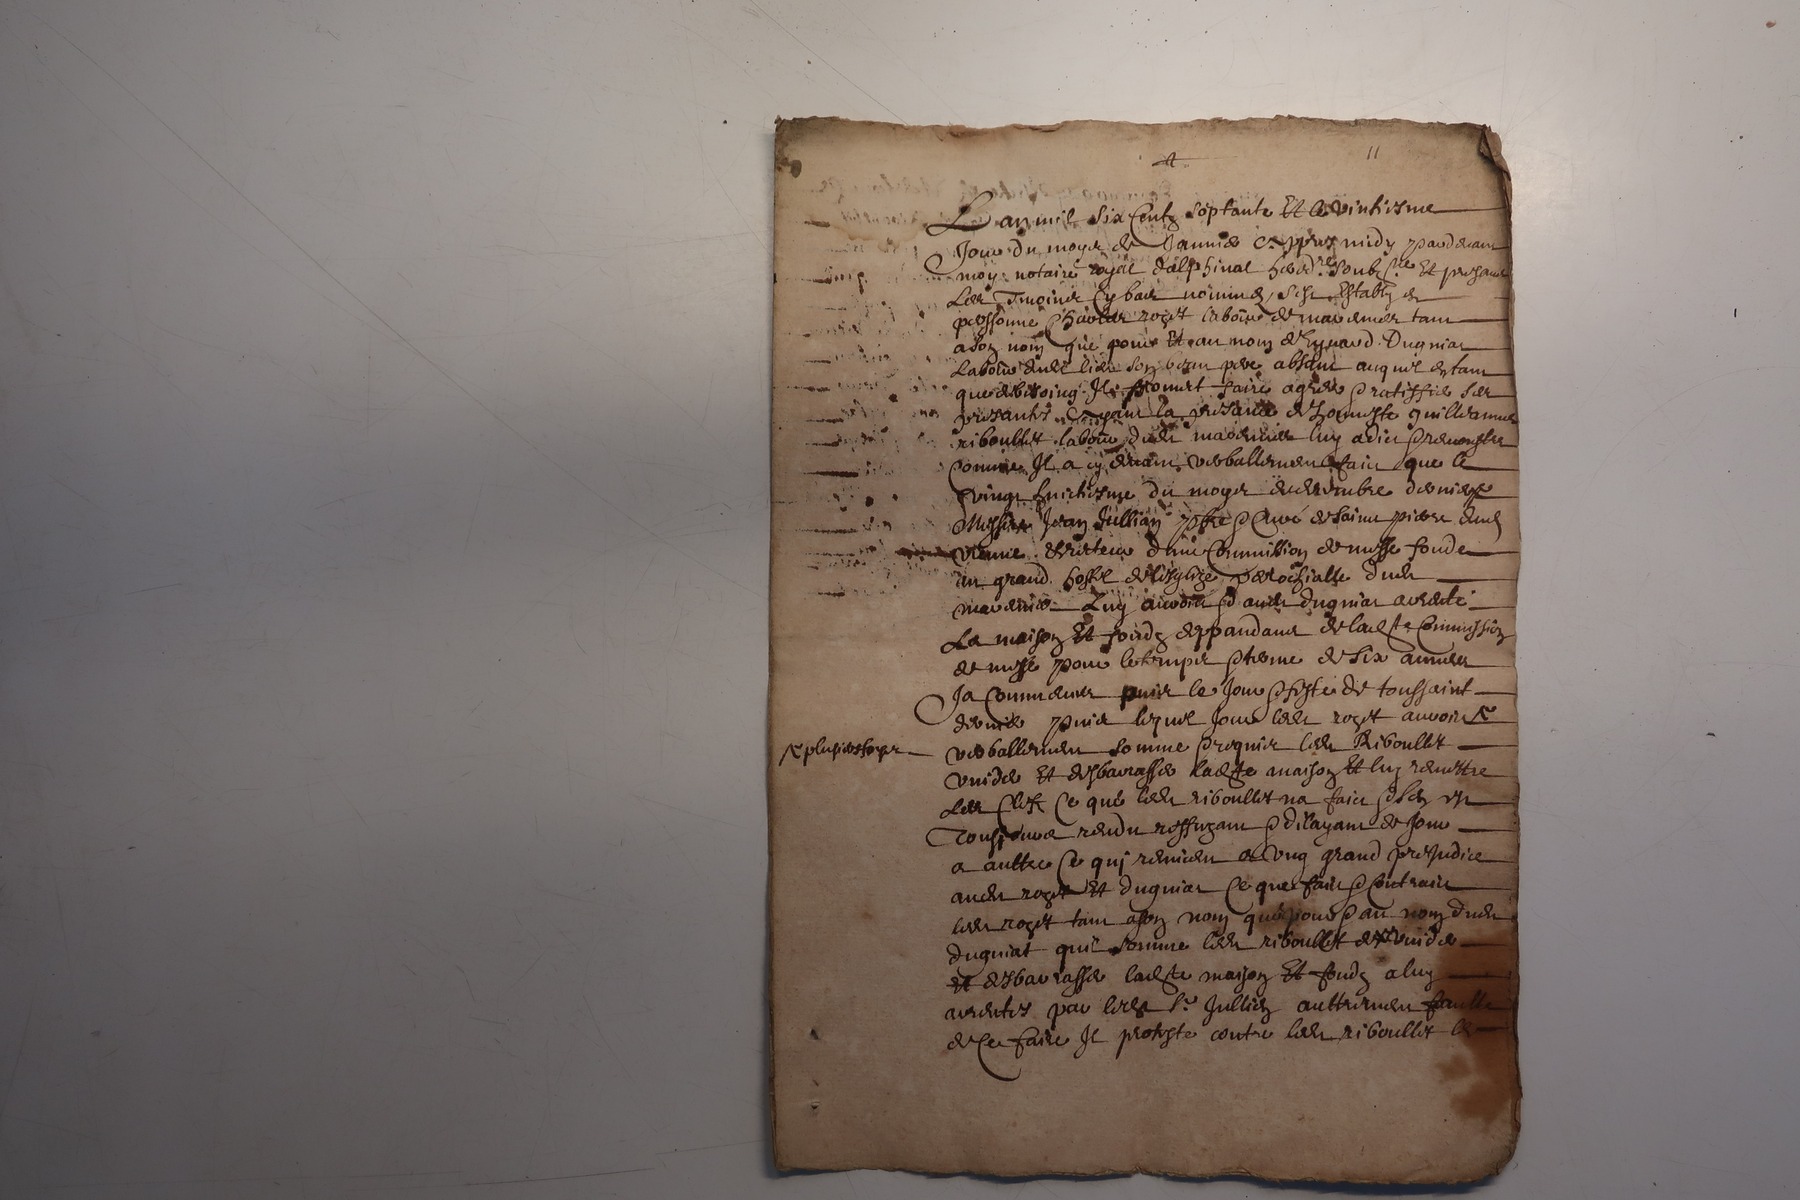 11
L an mil six centz septante et le vintiesme
Jour du moys de Janvier apres midy pardevant
moy notaire royal dalphinal hered.re soubz.ne et presantz
Les Tmoints cy bas nommes, sest establi en
personne Charles roget labour de
a son nom que pour et au nom de Dugniat
Labour dud lieu son beau pere absant auquel en tant
que de besoing Il promet faire agreer & ratiffier les
presantes en la presance de honneste guilleaume
riboullet labour dud luy a dict & remonstre
Comme Il a cy devant verballement faict que le
vingt huictiesme du moys de decembre dernier
Messire Jean Jullian pbre & Curé de Saint pierre
vienne Recteur dune Commission de messe fonde
au grand hostel de lesglize parrochialle dud
Luy auroit & aud dugniat arente
La maison et fondz deppandant de lad.te Commission
de messe pour le temps & terme de six annees
Ja Commences puis le Jour & feste de toussaint
dernier puis lequel Jour led roget auroit
plusieurs foys
verballement somme & requis led Riboullet
vuider et desbarasser lad.te maison et luy remettre
Les Clefz Ce que led riboullet na faict & sen est
Tousjours rendu reffuzant & dilayant de Jour
a auttre Ce qui revient a ung grand prejudice
aud roget et dugniat Ce que faict & Contraint
led roget tant a son nom que pour & au nom dud
dugniat quil somme led riboullet de vuider
et desbarasser lad.te maison et fondz a luy
arentes par led Sr Jullien auttrement faulte
de Ce faire Il proteste contre led riboullet de